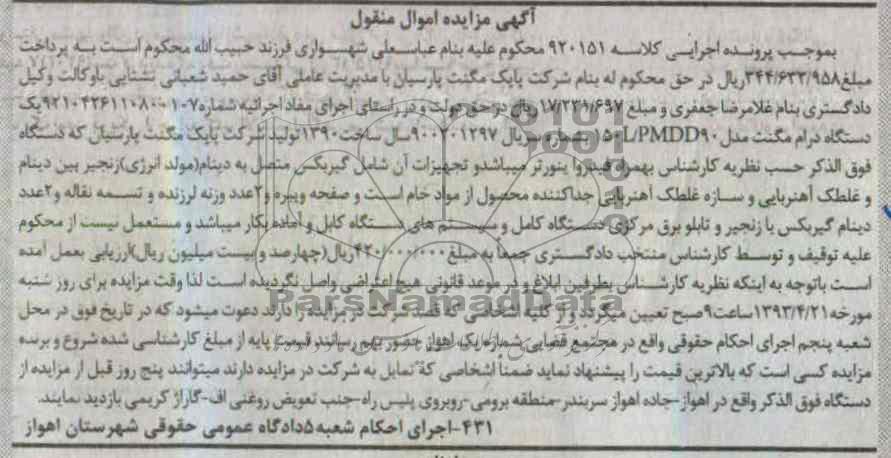 آگهی مزایده اموال منقول
بموجب پرونده اجرایی کلاسه ۹۲۰۱۵۱ محکوم علیه بنام عباسعلی شهسواری فرزند حبیب الله محکوم است به پرداخت
مبلغ۳۴۴/۶۳۲/۹۵۸ریال در حق محکوم له بنام شرکت پاپک مگنت پارسیان با مدیریت عاملی آقای حمید شعبانی نشتایی باوکالت وکیل
دادگستری بنام غلامرضا جعفری و مبلغ ۱۷/۲۳۱/۶۹۷ ریال در حق دولت و در راستای اجرای مفاد اجرائیه شماره یک
دستگاه درام مگنت مدل ۱۵۰L/PMDD۹۰ بشماره سریال ۹۰۰۲۰۱۲۹۷سال ساخت۱۳۹۰تولید شرکت پاپک مگنت پارسیان که دستگاه
فوق الذکر حسب نظریه کارشناس بهمراه فیدروا ینورتر میباشدو تجهیزات آن شامل گیربکس متصل به دینام(مولد انرژی)زنجیر بین دینام
و غلطک آهنربایی و سازه غلطک آهنربایی جداکننده محصول از مواد خام است و صفحه ویبره و۲عدد وزنه لرزنده و تسمه نقاله و۲عدد
دینام گیربکس با زنجیر و تابلو برق مرکزی دستگاه کامل و سیستم های دستگاه کابل و آماده بکار میباشد و مستعمل نیست از محکوم
علیه توقیف و توسط کارشناس منتخب دادگستری جمعا به مبلغ ۴۲۰/۰۰۰/۰۰۰ریال(چهارصد و بیست میلیون ریال)ارزیابی بعمل آمده
است باتوجه به اینکه نظریه کارشناس بطرفین ابلاغ و در موعد قانونی هیچ اعتراضی واصل نگردیده است لذا وقت مزایده برای روز شنبه
مورخه ۱۳۹۳/۴/۲۱ساعت۹صبح تعیین میگردد و از کلیه اشخاصی که قصد شرکت در مزایده را دارند دعوت میشود که در تاریخ فوق در محل
شعبه پنجم اجرای احکام حقوقی واقع در مجتمع قضایی شماره یک اهواز حضور بهم رسانند قیمت پایه از مبلغ کارشناسی شده شروع و برنده
مزایده کسی است که بالاترین قیمت را پیشنهاد نماید ضمناً اشخاصی که تمایل به شرکت در مزایده دارند میتوانند پنج روز قبل از مزایده از
دستگاه فوق الذکر واقع در اهواز-جاده اهواز سربندر-منطقه برومی-روبروی پلیس راه-جنب تعویض روغنی اف-گاراژ کریمی بازدید نمایند.
۴۳۱-اجرای احکام شعبه۵دادگاه عمومی حقوقی شهرستان اهواز
ParsNamadData